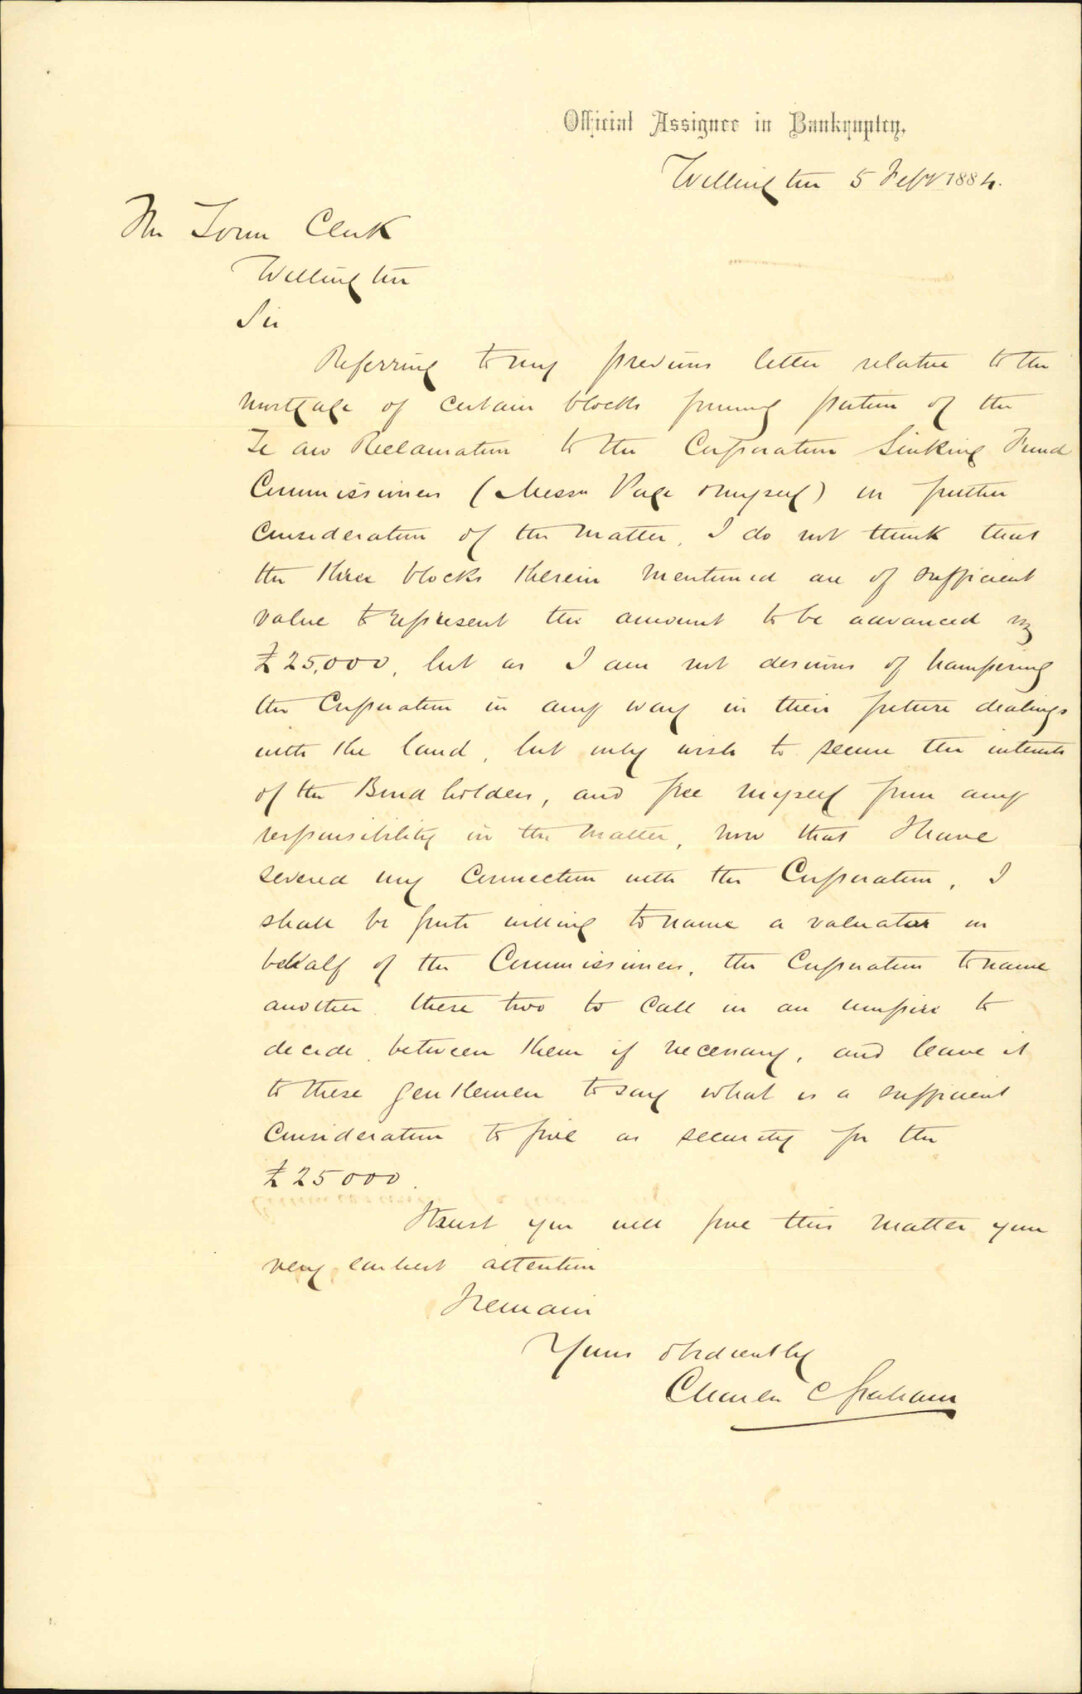 Official Assignee in Bankruptcy,
Wellington 5 Feby 1884.
The Town Clerk
Wellington
Sir
Referring to my previous letter relative to the
mortgage of certain blocks forming portion of the
Te Aro Reclamation to the Corporation Sinking Fund
Commissioners (Messrs Page & myself) on further
consideration of the matter, I do not think that
the three blocks therein mentioned are of sufficient
value to represent the amount to be advanced viz
£25,000, but as I am not desirous of hampering
the Corporation in any way in their future dealings
with the land, but only wish to secure the interests
of the Bond holders, and free myself from any
responsibility in the matter, now that I have
severed my connection with the Corporation, I
shall be quite willing to name a valuator on
behalf of the Commissioners, the Corporation to name
another these two to call in an umpire to
decide between them if necessary, and leave it
to these gentlemen to say what is a sufficient
consideration to give as security for the
£25000.
I trust you will give this matter your
very earliest attention
I remain
Yours obediently
Charles C Graham